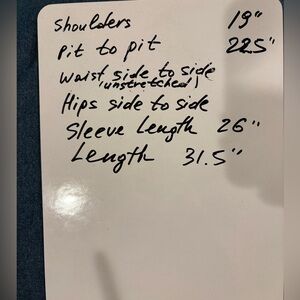 Shoulders 19"
Pit to pit 22.5"
Waist side to side
(unstretched)
Hips side to side
Sleeve Length 26"
Length 31.5"